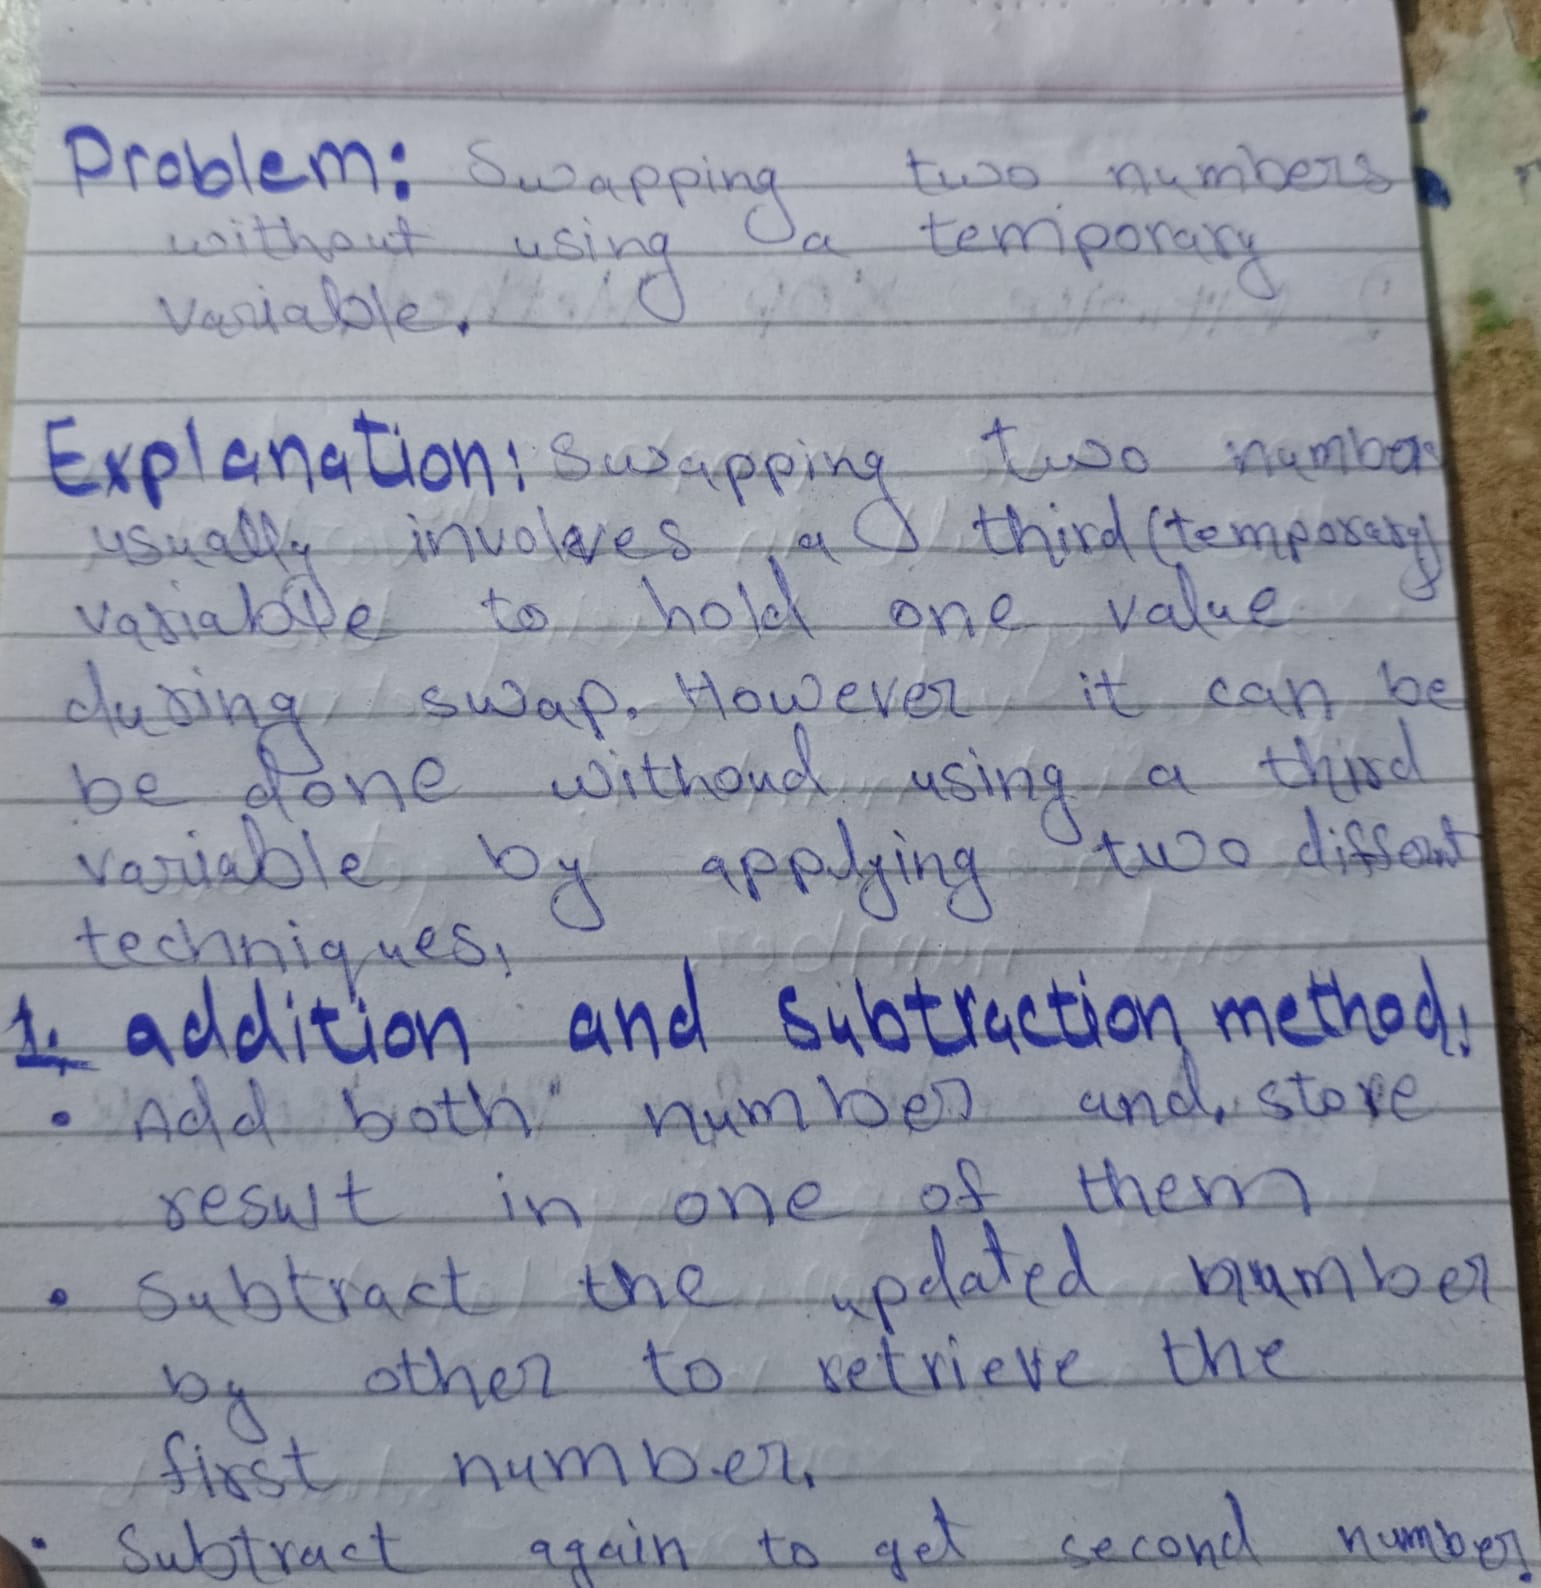 Problem: Swapping two numbers
without using a temporary
variable.
Explanation: Swapping two number
usually involves a third (temporary)
variable to hold one value
during swap. However it can be
be done withoud using a third
variable by applying two differnt
techniques,
1. addition and subtraction method:
• Add both number and store
result in one of them
• Subtract the updated number
by other to retrieve the
first number.
• Subtract again to get second number.